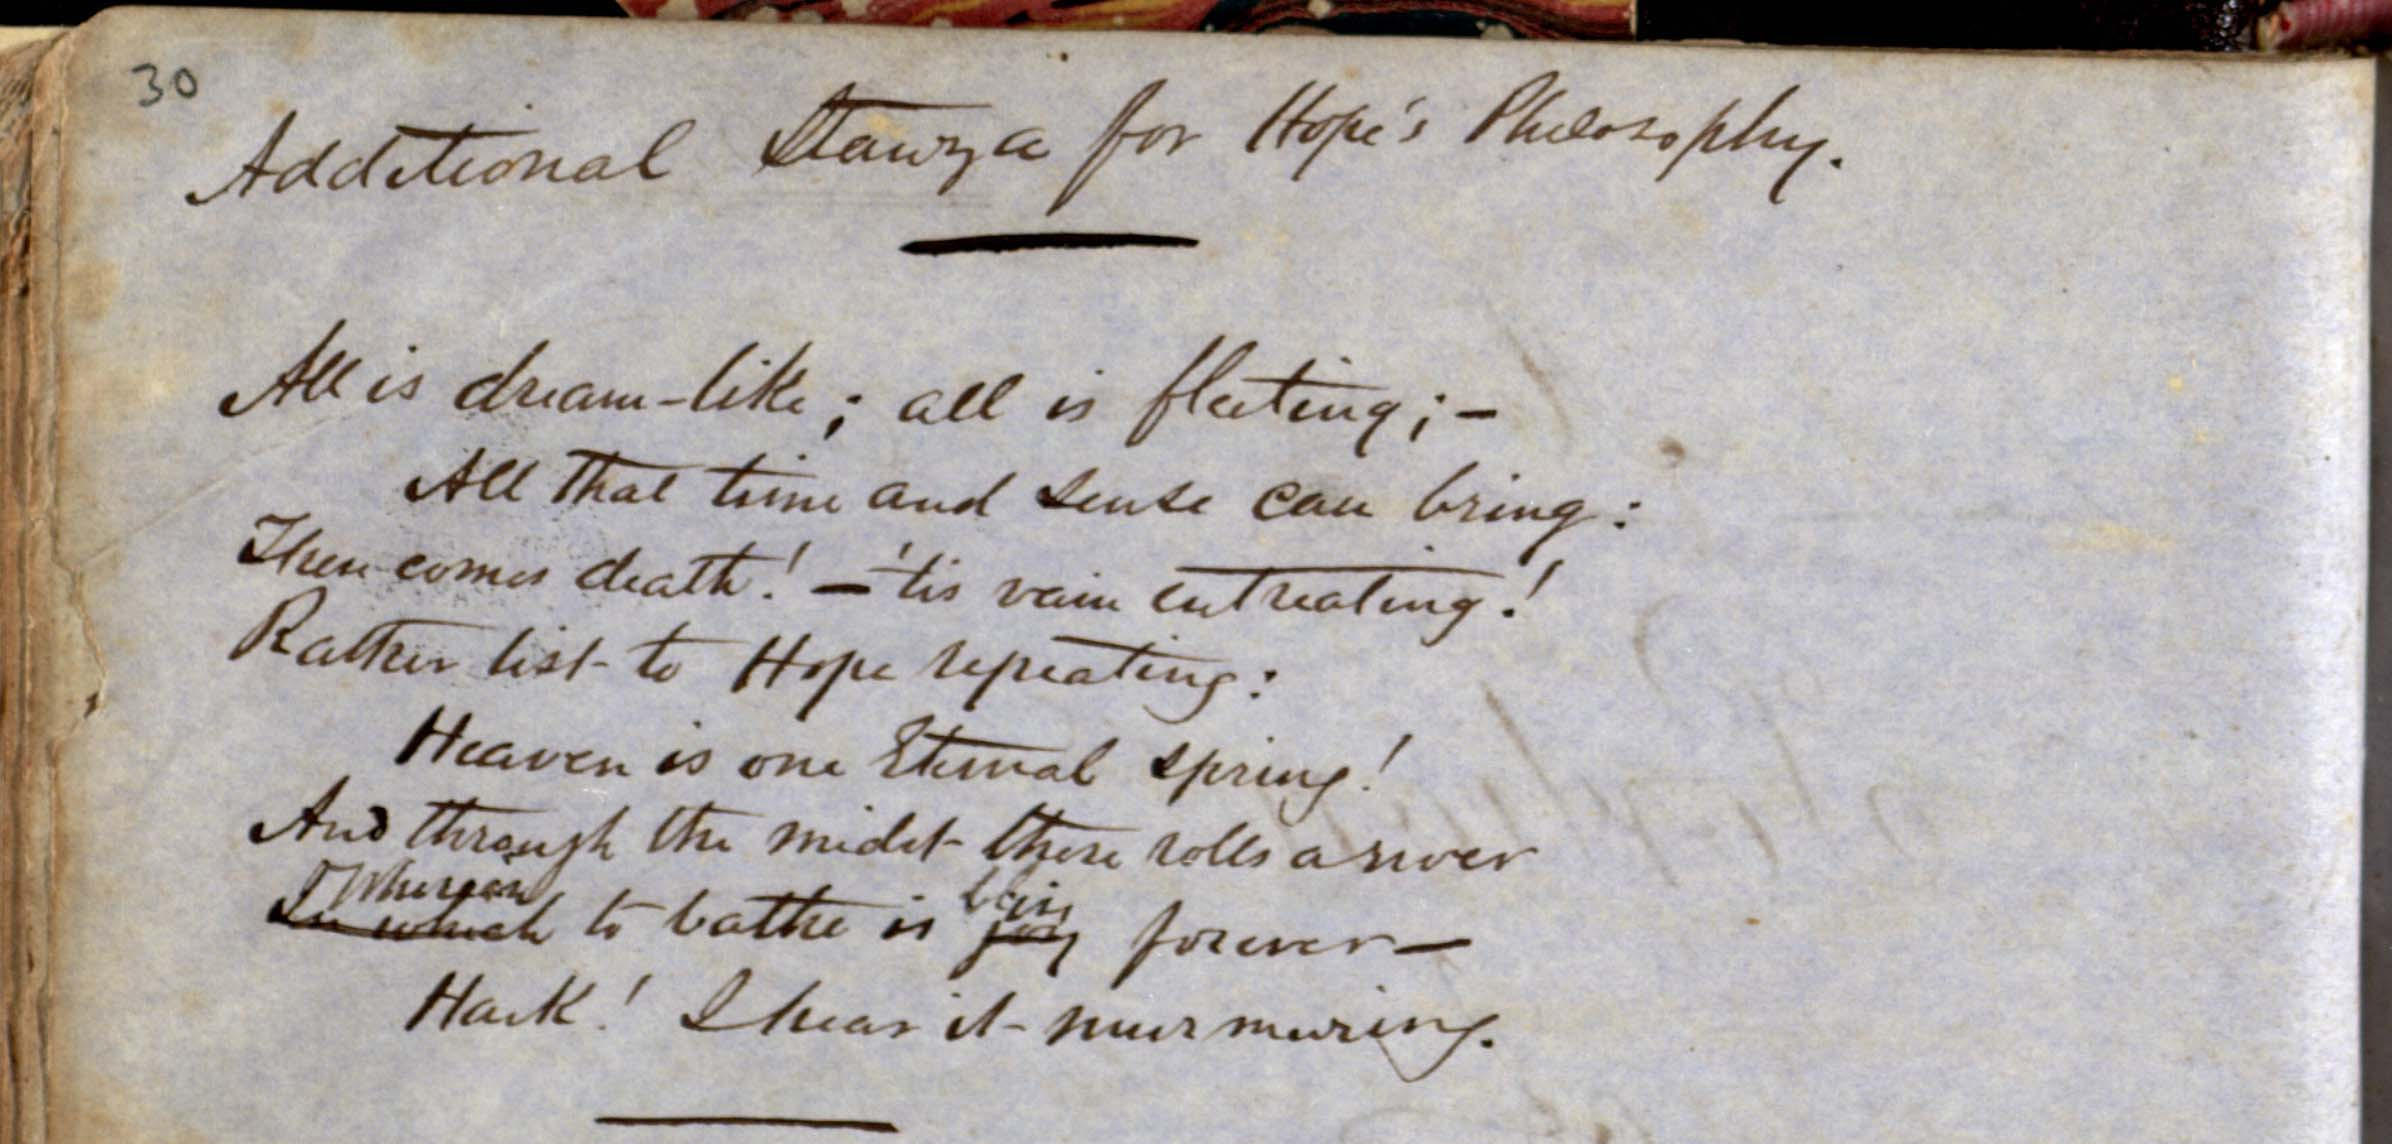 30
Additional Stanza for Hope's Philosophy.
All is dream-like; all is fleeting; –
All that time and sense can bring:
Then comes death! – 'tis vain entreating!
Rather list to Hope repeating:
Heaven is one Eternal spring!
And through the midst there rolls a river
Whereon
In which to bathe is joy forever –
Hark! I hear it murmuring.